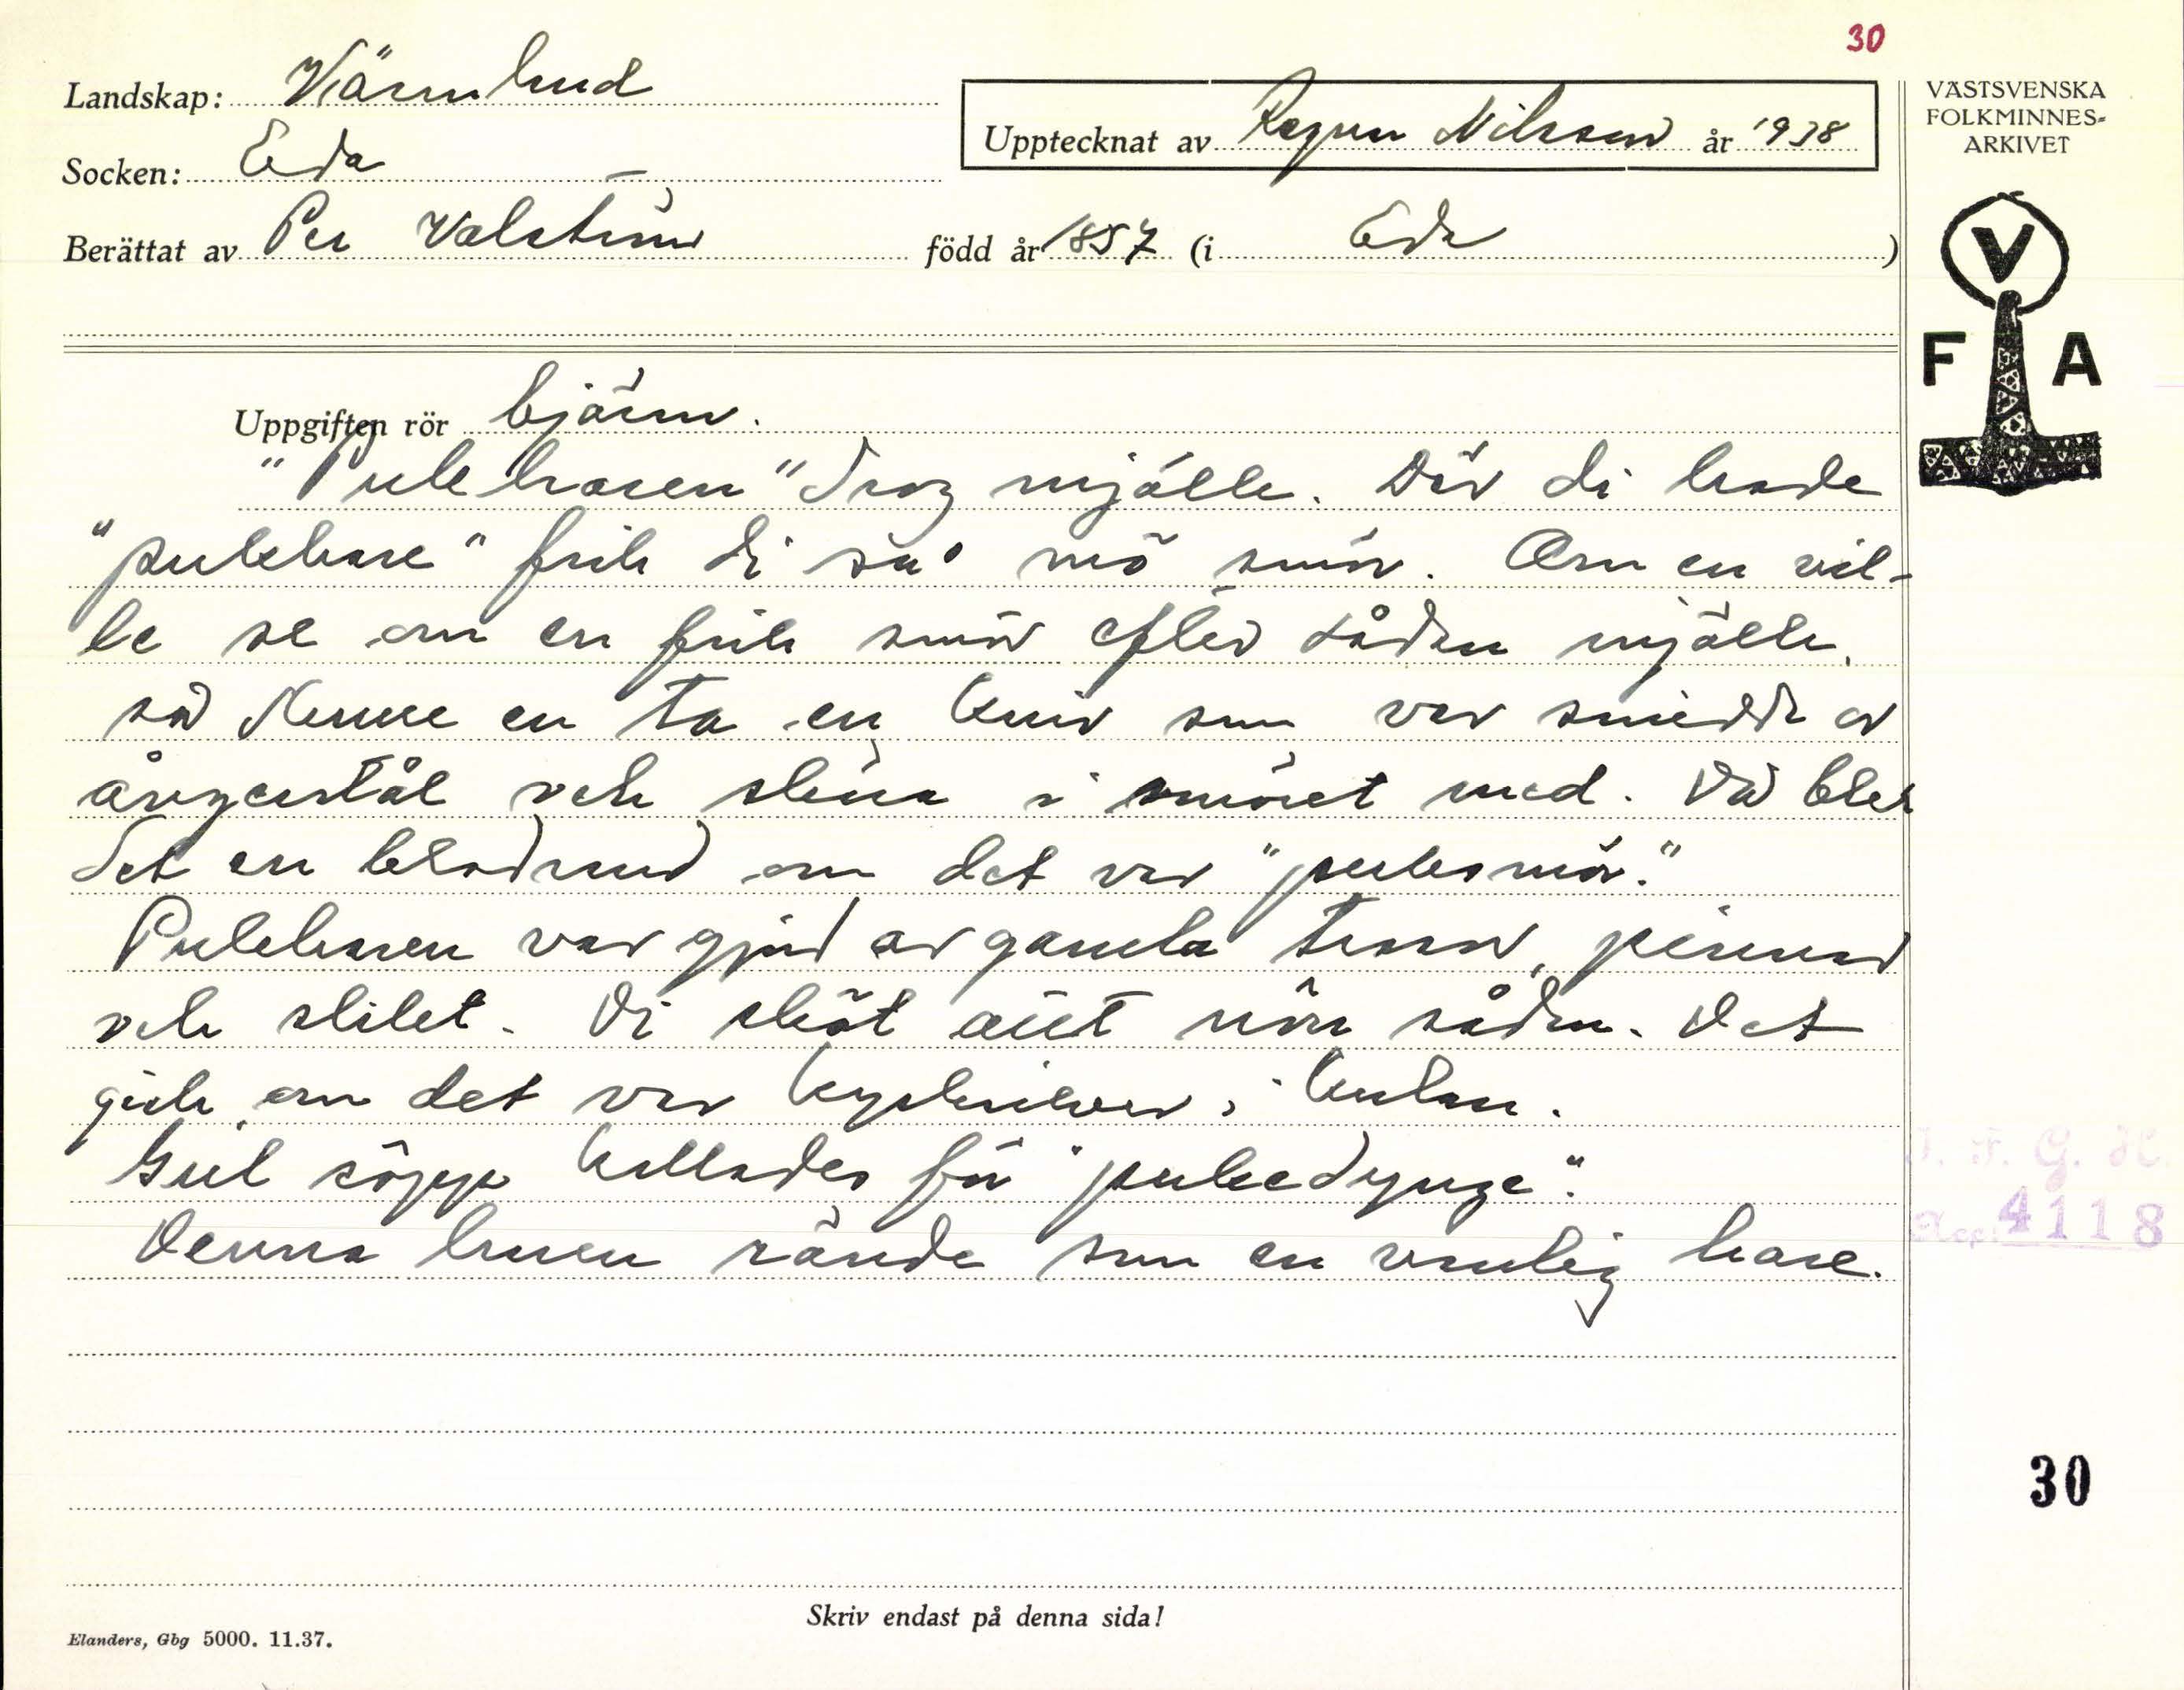 30
Landskap: Värmland
Upptecknat av Ragnar Nilsson år 1938
VÄSTSVENSKA
FOLKMINNES-
ARKIVET
Socken: Eda
Berättat av Per Valström född år 1857 (i Eda)
V
F A
Uppgiften rör bjärn.
"Puleharen" drog mjölk. Där di hade
"pulehare" fick di så' mö smör. Om en vil-
le se om en fick smör efter sådan mjölk,
så kunne en ta en kniv som var smidd av
årgerstål och skära i smöret med. Då blev
det en blodrand om det var "pulesmör".
Puleharen var gjord av gamla trasor, pinnar
och slikt. Di sköt aitt nön sådan. Det
gick om det var kyrksilver i kulan.
Gul söpp kallades för "puledynge".
Denna haren rände som en vanlig hare.
I. F. G. H.
Acc. 4118
30
Skriv endast på denna sida!
Elanders, Gbg 5000. 11.37.